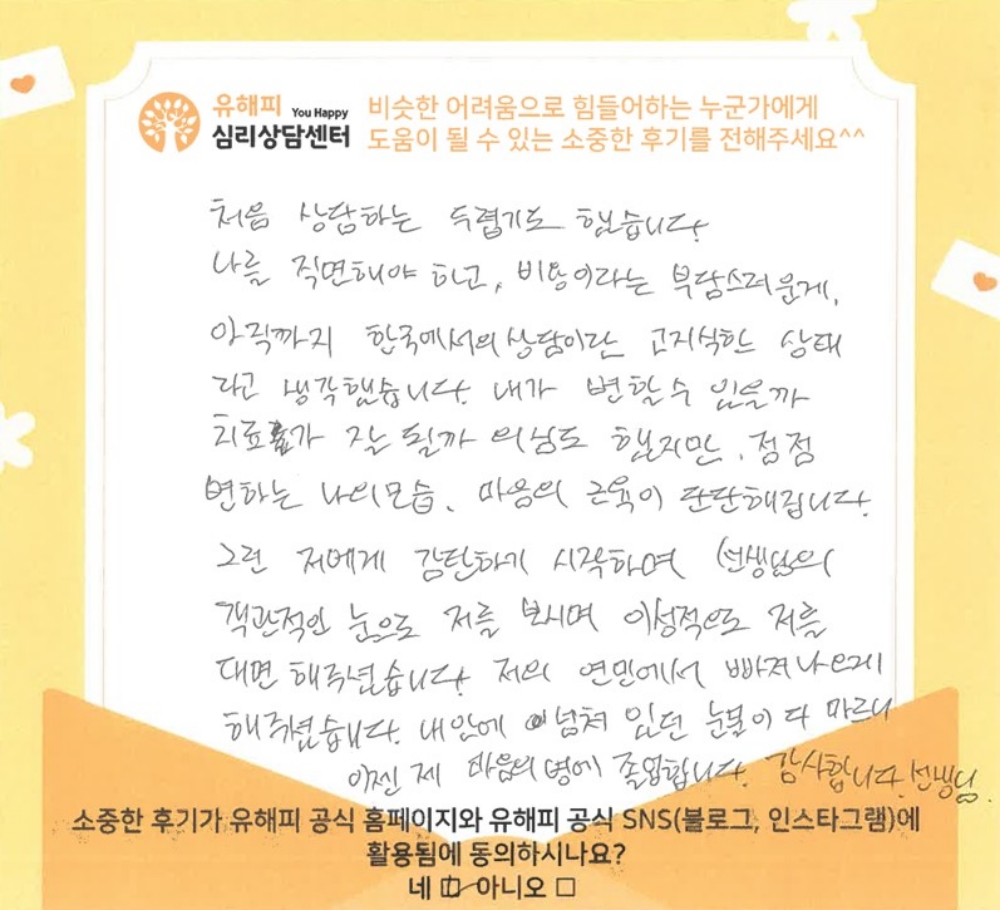 유해피 You Happy
심리상담센터
비슷한 어려움으로 힘들어하는 누군가에게
도움이 될 수 있는 소중한 후기를 전해주세요^^
처음 상담하는 두렵기도 했습니다.
나를 직면해야 하고, 비용이라는 부담스러운게,
아직까지 한국에서의 상담이란 고지식한 상태
라고 생각했습니다. 내가 변할수 있을까
치료효과가 잘 될까 의심도 했지만, 점점
변하는 나의모습, 마음의 근육이 단단해집니다.
그런 저에게 감탄하기 시작하며 선생님의
객관적인 눈으로 저를 보시며 이성적으로 저를
대면 해주셨습니다. 저의 연민에서 빠져나오게
해주셨습니다. 내안에 넘쳐 있던 눈물이 다 마르니
이젠 제 마음의 병에 졸업합니다. 감사합니다. 선생님.
소중한 후기가 유해피 공식 홈페이지와 유해피 공식 SNS(블로그, 인스타그램)에
활용됨에 동의하시나요?
네 ☑ 아니오 □